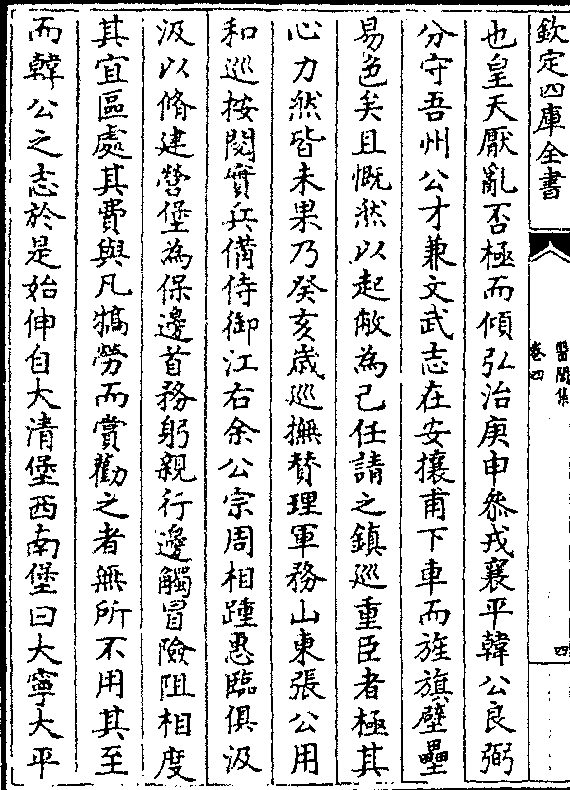 欽定四庫全書
醫閭集
卷四
四
也皇天厭亂否極而傾弘治庚申叅戎襄平韓公良弼
分守吾州公才兼文武志在安攘甫下車而旌旗壁壘
易色矣且慨然以起敝為己任請之鎮廵重臣者極其
心力然皆未果乃癸亥歳廵撫賛理軍務山東張公用
和廵按閱實兵備侍御江右余公宗周相踵惠臨俱汲
汲以脩建營堡為保邊首務躬親行邊觸冒險阻相度
其宜區處其費與凡犒勞而賞勸之者無所不用其至
而韓公之志於是始伸自大清堡西南堡曰大寧大平